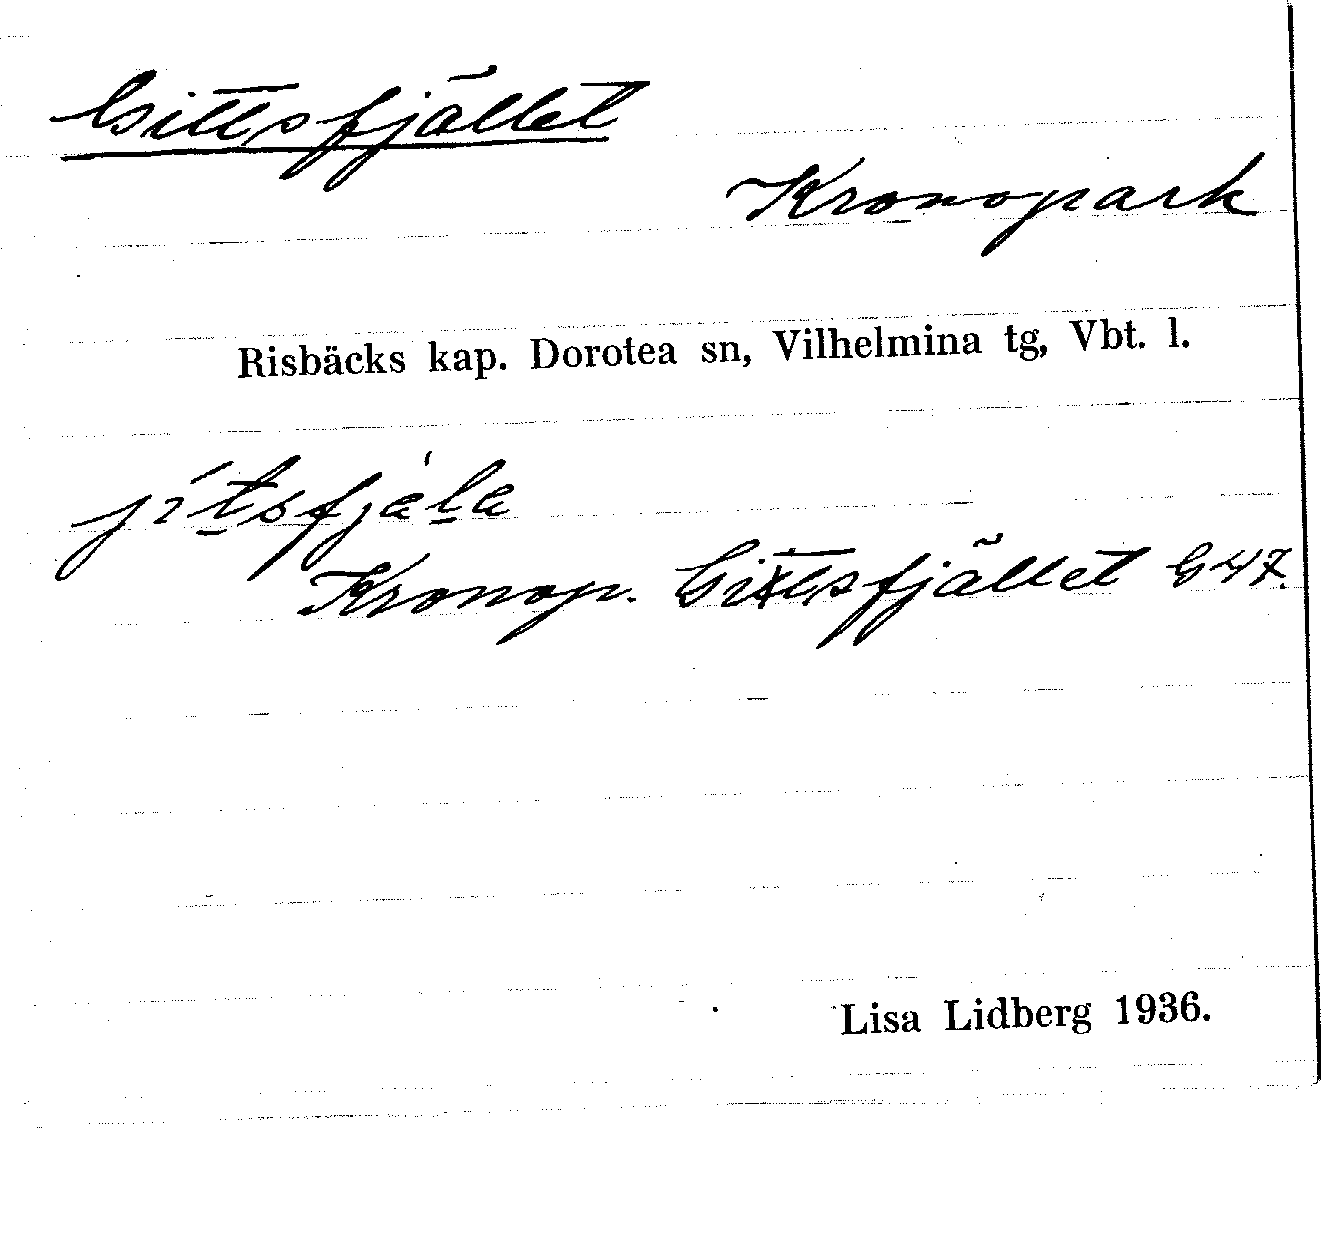 Gittsfjället
Kronopark
Risbäcks kap. Dorotea sn, Vilhelmina tg, Vbt. l.
jítsfjàla
Kronop. Gittsfjället G47.
Lisa Lidberg 1936.